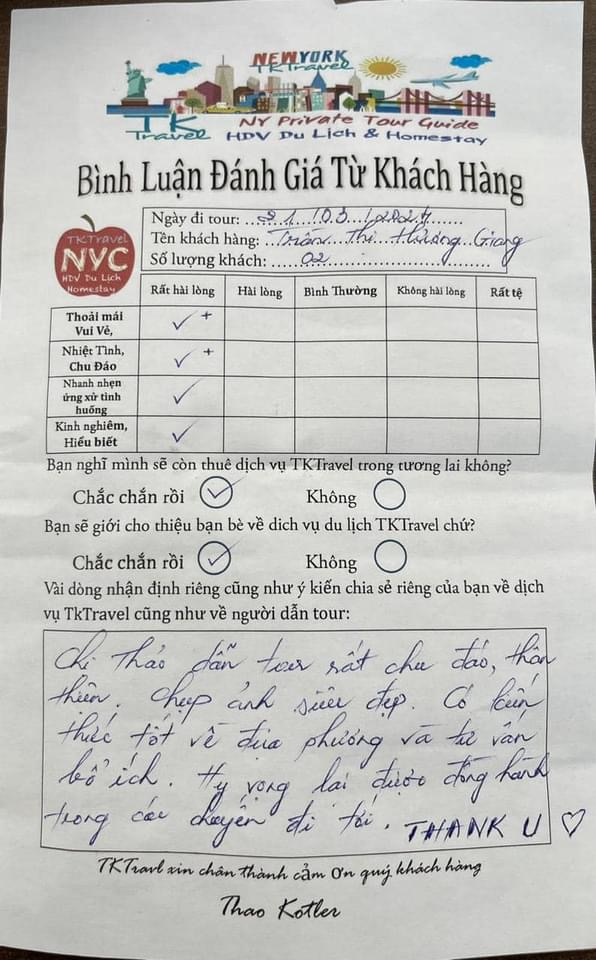 NEWYORK
TKTravel
TK
Travel
NY Private Tour Guide
HDV Du Lịch & Homestay
Bình Luận Đánh Giá Từ Khách Hàng
TKTravel
NYC
HDV Du Lịch
Homestay
Ngày đi tour: 31/03/2024
Tên khách hàng: Trần Thị Hương Giang
Số lượng khách: 02
Rất hài lòng Hài lòng Bình Thường Không hài lòng Rất tệ
Thoải mái
Vui Vẻ,
Nhiệt Tình,
Chu Đáo
Nhanh nhẹn
ứng xử tình
huống
Kinh nghiệm,
Hiểu biết
Bạn nghĩ mình sẽ còn thuê dịch vụ TKTravel trong tương lai không?
Chắc chắn rồi Không
Bạn sẽ giới cho thiệu bạn bè về dich vụ du lịch TKTravel chứ?
Chắc chắn rồi Không
Vài dòng nhận định riêng cũng như ý kiến chia sẻ riêng của bạn về dịch
vụ TkTravel cũng như về người dẫn tour:
Chị Thảo dẫn tour rất chu đáo, thân
thiện. Chụp ảnh siêu đẹp. Có kiến
thức tốt về địa phương và tư vấn
bổ ích. Hy vọng lại được đồng hành
trong các chuyến đi tới. THANK U ♡
TKTravl xin chân thành cảm ơn quý khách hàng
Thao Kotler